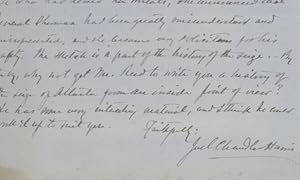 General Sherman had been greatly misunderstood and
misrepresented, and she became very solicitous for his
safety. The sketch is a part of the history of the siege. By
why not get Mr. Reed to write you a history of
the siege of Atlanta from an inside point of view?
He has some very interesting material, and I think he could
work it up to suit you.
Faithfully:
Joel Chandler Harris